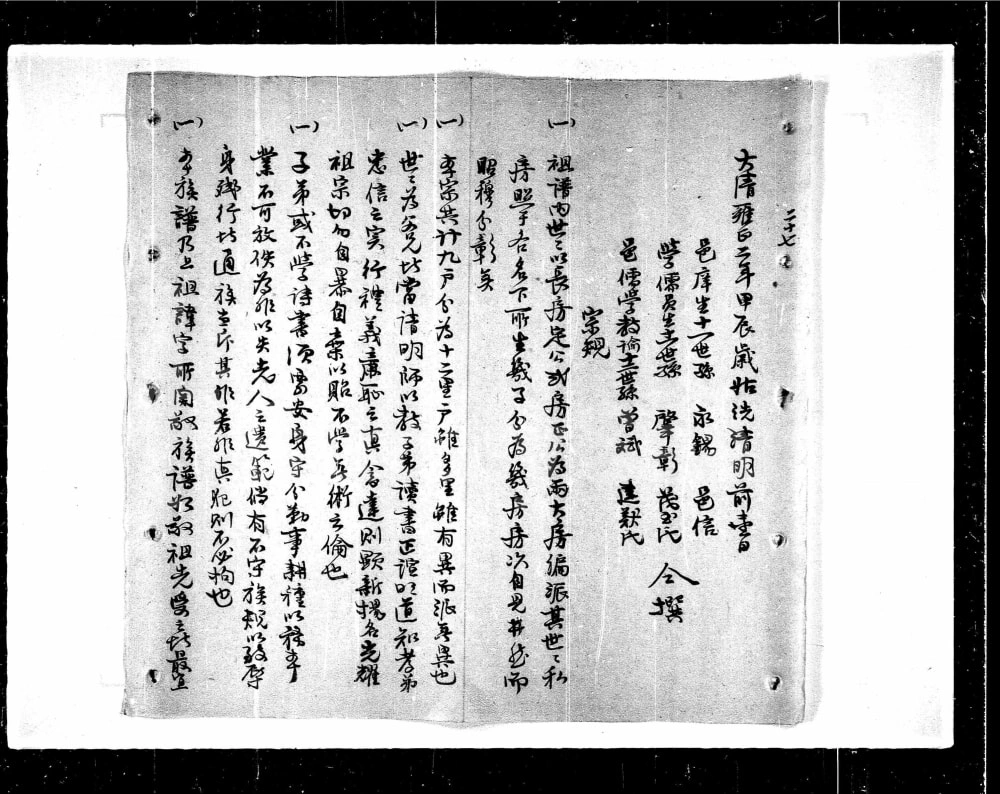 二十七
大清雍正二年甲辰歲姑洗清明前壹日
邑庠生十一世孫 永錫 邑信
學儒員生十二世孫 肇彰 茂玉氏 仝撰
邑儒學教諭十二世孫 曾斌 建猷氏
宗規
(一) 祖譜內世々以長房定公或房正公為兩大房編派其世々私
房照于各名下所生幾子分為幾房房次自見井然而
昭穆分彰矣
(一) 本宗共計九戶分為十二里戶雖多里雖有異而派無異也
(一) 世々為父兄者當請明師以教子弟讀書正誼明道知孝弟
忠信之实行禮義廉恥之真舍達則顯新揚名光耀
祖宗切勿自暴自棄以貽不學無術之倫也
(一) 子弟或不學詩書須當安身守分勤事耕種以務本
業不可放佚為非以失先人之遺範倘有不守族規以致辱
身殘行者通族共斥其非若非真犯則不必拘也
(一) 本族譜乃上祖諱字所關敬族譜如敬祖先受之者最宜